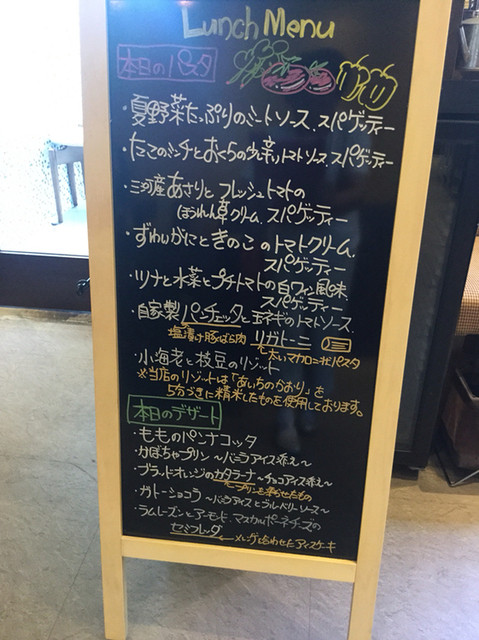 Lunch Menu
本日のパスタ
・夏野菜たっぷりのミートソース、スパゲッティー
・たこのミンチとおくらの少し辛いトマトソース、スパゲッティー
・三河産あさりとフレッシュトマトの
ほうれん草クリーム、スパゲッティー
・ずわいがにときのこのトマトクリーム、
スパゲッティー
・ツナと水菜とプチトマトの白ワイン風味、
スパゲッティー
・自家製パンチェッタと玉ネギのトマトソース、
塩漬け豚ばら肉 リガトーニ
太いマカロニ状パスタ
・小海老と枝豆のリゾット
※当店のリゾットは「あいちのかおり」を
5分づきに精米したものを使用しております。
本日のデザート
・もものパンナコッタ
・かぼちゃプリン ～バニラアイス添え～
・ブラッドオレンジのカタラーナ ～チョコアイス添え～
プリンを凍らせたもの
・ガトーショコラ ～バニラアイスとブルーベリーソース～
・ラムレーズンとアーモンド、マスカルポーネチーズの
セミフレッド ← メレンゲと合わせたアイスケーキ